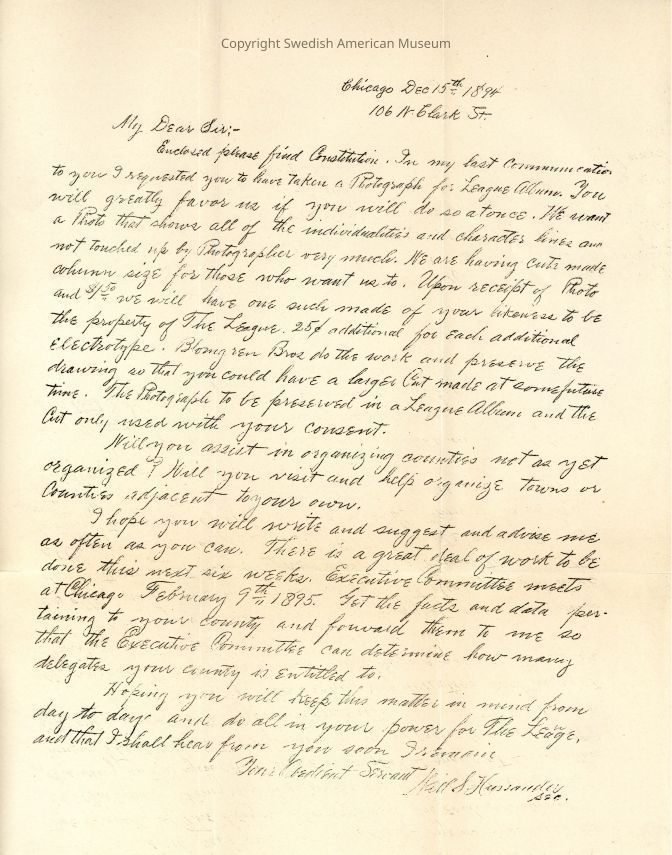 Copyright Swedish American Museum
Chicago Dec 15th 1894
106 N. Clark St.
My Dear Sir;-
Enclosed please find Constitution. In my last communication
to you I requested you to have taken a Photograph for League Album. You
will greatly favor us if you will do so atonce. We want
a Photo that shows all of the individualities and character lines and
not touched up by Photographer very much. We are having Cuts made
column size for those who want us to. Upon receipt of Photo
and $1.50 we will have one such made of your likeness to be
the property of The League. 25¢ additional for each additional
Electrotype. Blomgren Bros do the work and preserve the
drawing so that you could have a larger Cut made at some future
time. The Photograph to be preserved in a League Album and the
Cut only used with your consent.
Will you assist in organizing counties not as yet
organized? Will you visit and help organize towns or
Counties adjacent to your own.
I hope you will write and suggest and advise me
as often as you can. There is a great deal of work to be
done this next six weeks. Executive Committee meets
at Chicago February 9th 1895. Get the facts and data per-
taining to your county and forward them to me so
that the Executive Committee can determine how many
delegates your county is entitled to.
Hoping you will keep this matter in mind from
day to day and do all in your power for The Leage,
and that I shall hear from you soon I remain
Your Obedient Servant
Sec.